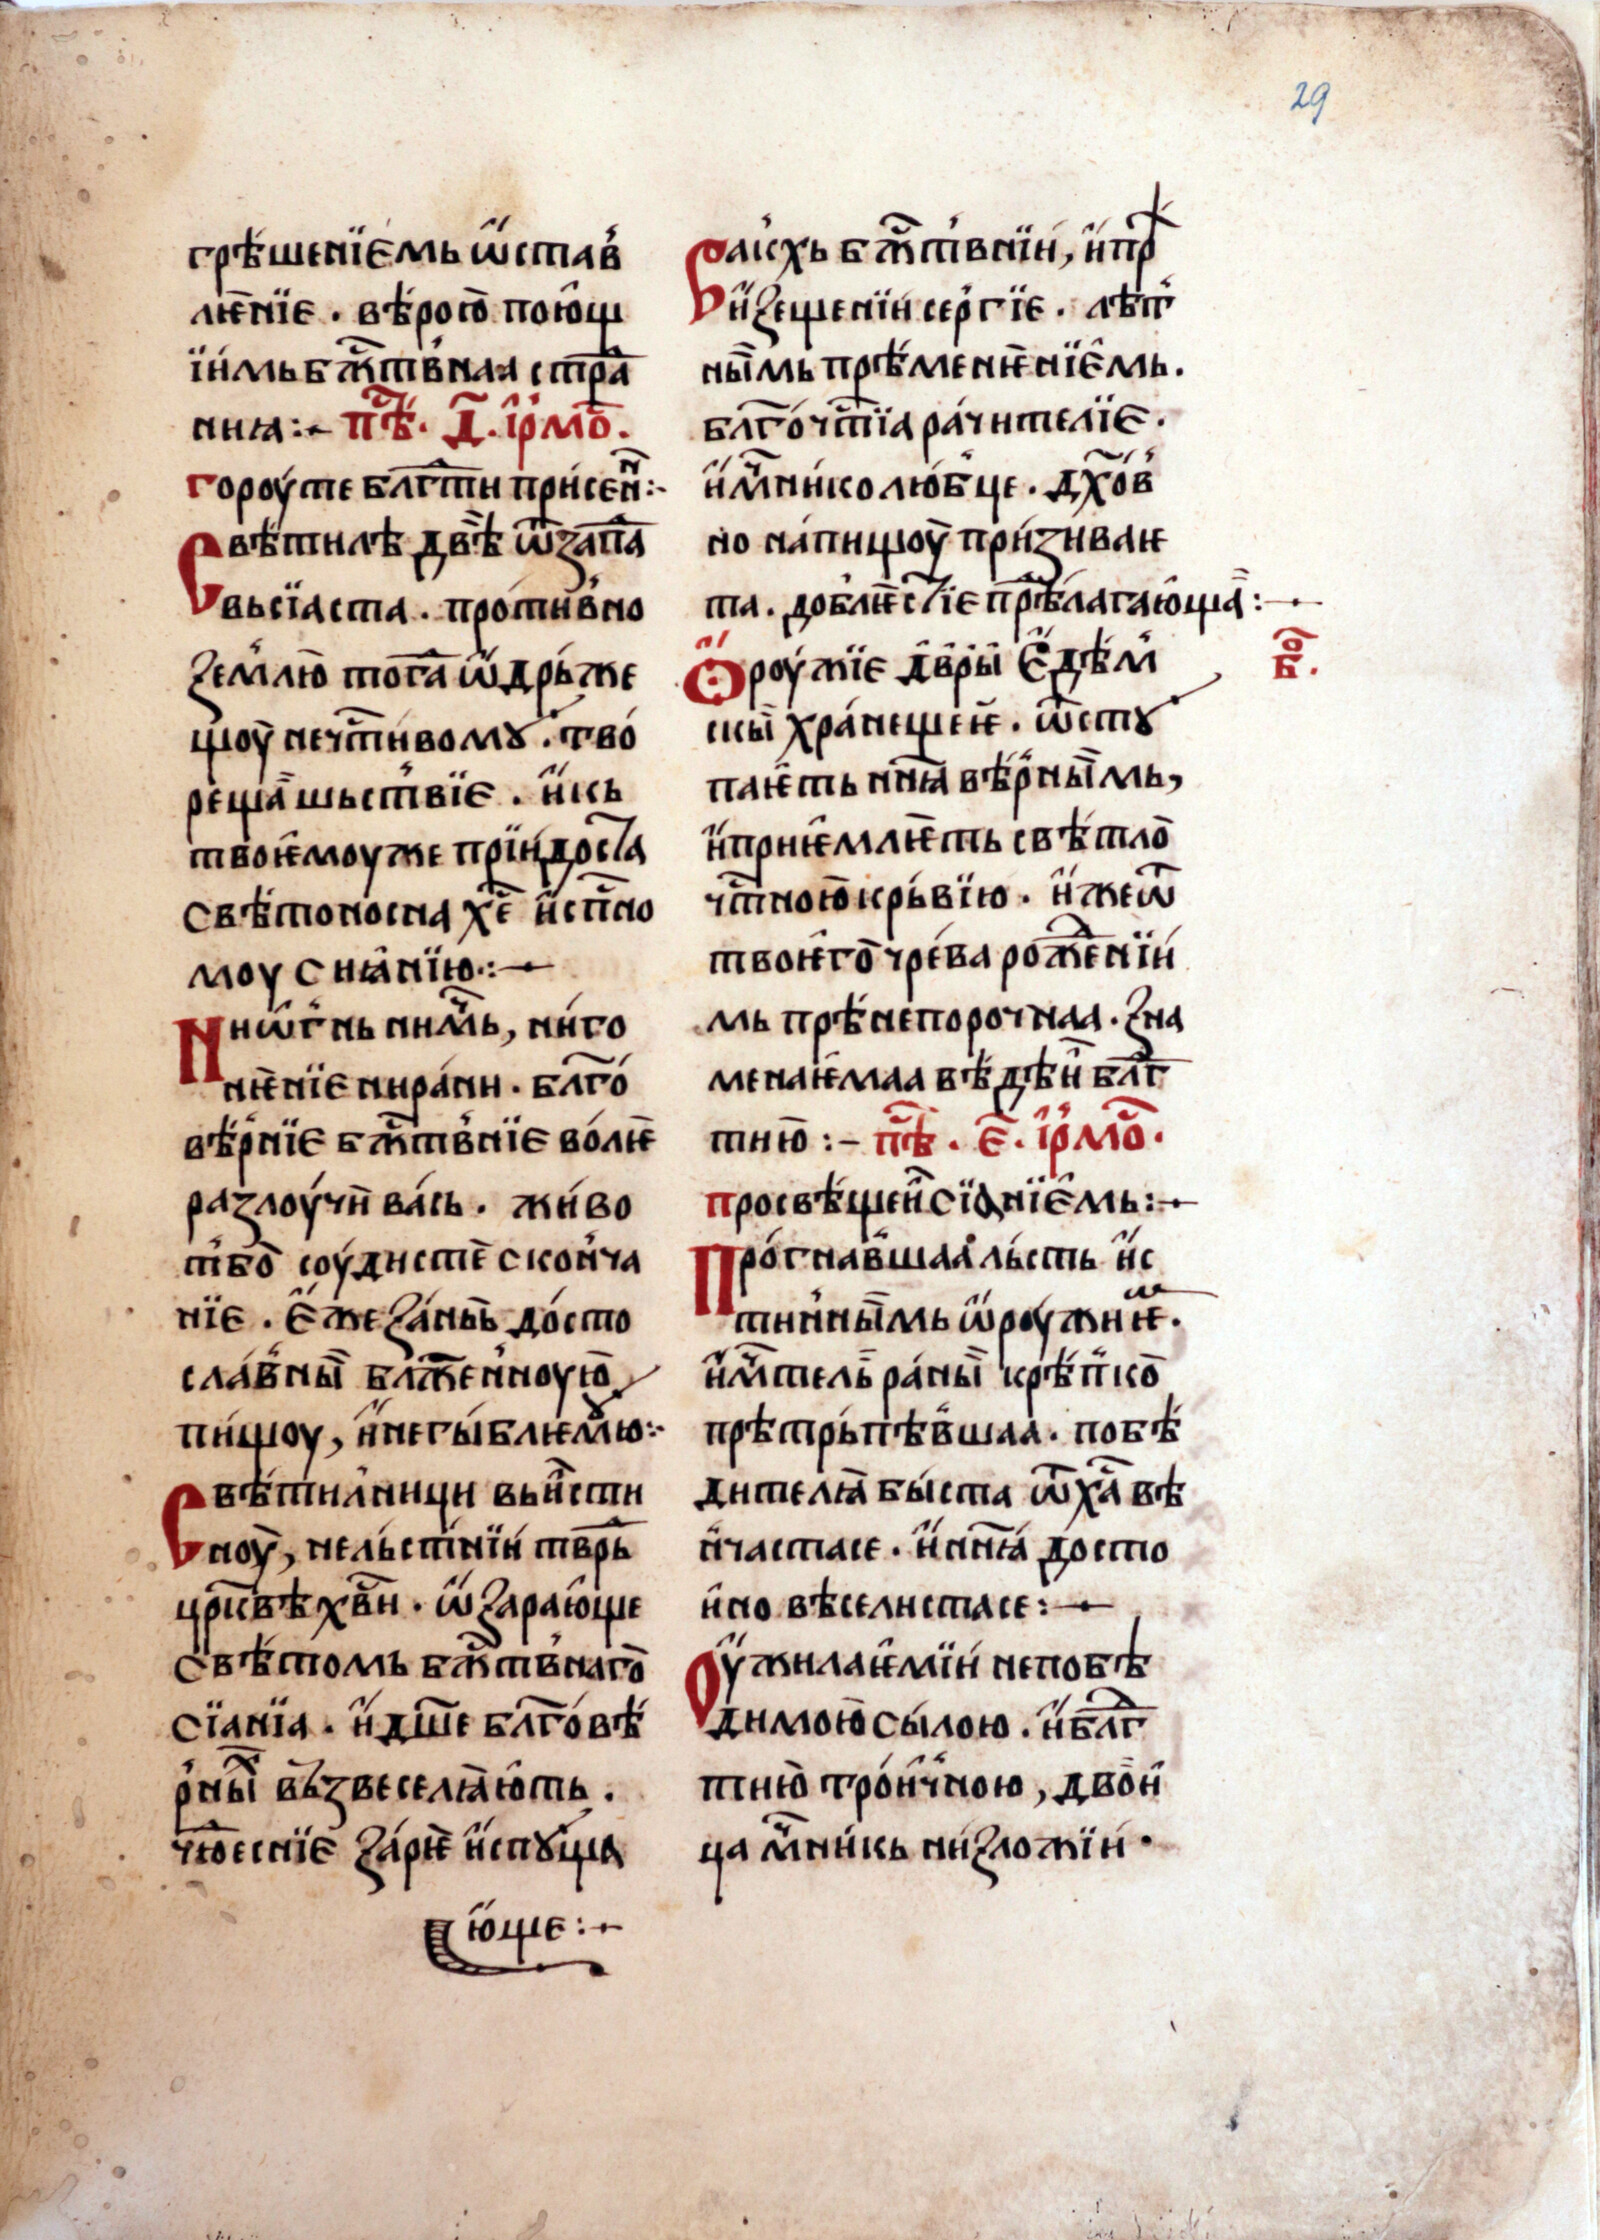 29
грѣ́шенїѥмь ѡ҆ставⷧ
лѥ́нїе . вѣ́рою̀ пою҆щ
їи́мь бж҃тⷭвнаа страⷣ
ниꙗ :- пⷭ҇ѣ . д҃ . і҆рмо҇ .
гороу́ те блгⷣти при́сѣнⷩ :-
Свѣ́тилѣ двѣ̀ ѿ запаⷣ
вьсїаста . про́тивно
землю̀ тогⷣа ѡ҆дрь́же
щоу̀ нечⷭтивомꙋ . тво́
реща̀ шьствїе . и҆ кь
твоѥмоу же прїи́доста
свѣ́тоносна хе҃ и҆ спⷭно
моу сиꙗ́нїю :-
Ни ѡ҆гнь ни мⷱь , ни го
нѥнїе ни ра́ни . блгⷣо
вѣ́рнїе бжⷭтвнїе во́лѥ
разлоу́чи ва́сь . живо
тⷡбо соудисте сконча
нїе . ѥ҆же за́ньь до́сто
сла́вны̀ блаженноую̀
пи́щоу , и҆ негы́блѥмꙋю :-
Свѣ́тилници вьи҆сти
ноу̀ , нель́стнїи твⷬрь
црⷦвѣ хв҃и . ѡ҆зарающе
свѣ́томь бжⷭтвнаго̀
сїанїа . и҆ дш҃е блгⷣо́вѣ
рныⷯ вьзвеселꙗють .
чюⷣеснїе за́рѥ и҆спꙋ́ща
ю҆ще :-
Вакхь бжⷭтвнїи , и҆ прⷣ
и҆зещенїи сергїе . лѣпⷪ
ны̀мь прѣ́менѥнїѥмь .
блгⷣо́чⷭтїа ра́чителїе .
и҆ мⷱни́колю́бце . дх҃о́в
но на́пищоу̀ при́зиваѥ
та . доблѥстїе прⷣѣ́лагаю҆ща̀ :-
Ѻ҆роу́жїе двⷣры ѥ҆дѣⷨ
скы̀ хра́нещеѥ . ѿстꙋ
паѥть нн҃ꙗ вѣ́рны̀мь ,
и҆ приѥмлѥть свѣ́тло̀
чⷭтною̀ крь́вїю . и҆же ѿ
твоѥго̀ чре́ва рожⷣенїи
мь прѣ́непорочнаа . зна
менаѥмаа вѣ́дѣнⷩ блгⷣ
тию̀ :- пⷭ҇ѣ . е҃ . і҆рмо҇ .
бⷪ .
просвѣ́щенⷩ сїанїѥмь :-
Про́гнавⷡшаа ль́сть и҆с
тинны̀мь ѡ҆роужиѥⷨ .
и҆ мⷱтель ра́ны̀ крѣ́пко̀
прѣ́трьпѣвⷡшаа . побѣ́
дителꙗ́ бы́ста ѿ ха҃ вѣ
нчастасе . и҆ нн҃ꙗ досто
и҆но вѣселистасе :-
Оу҆жилаѥ̀мїи непобѣ
димою̀ сы́лою . и҆ блгⷣ
тию̀ тро́ичною , дво́и
ца мⷱни́кь ни́зложїи .